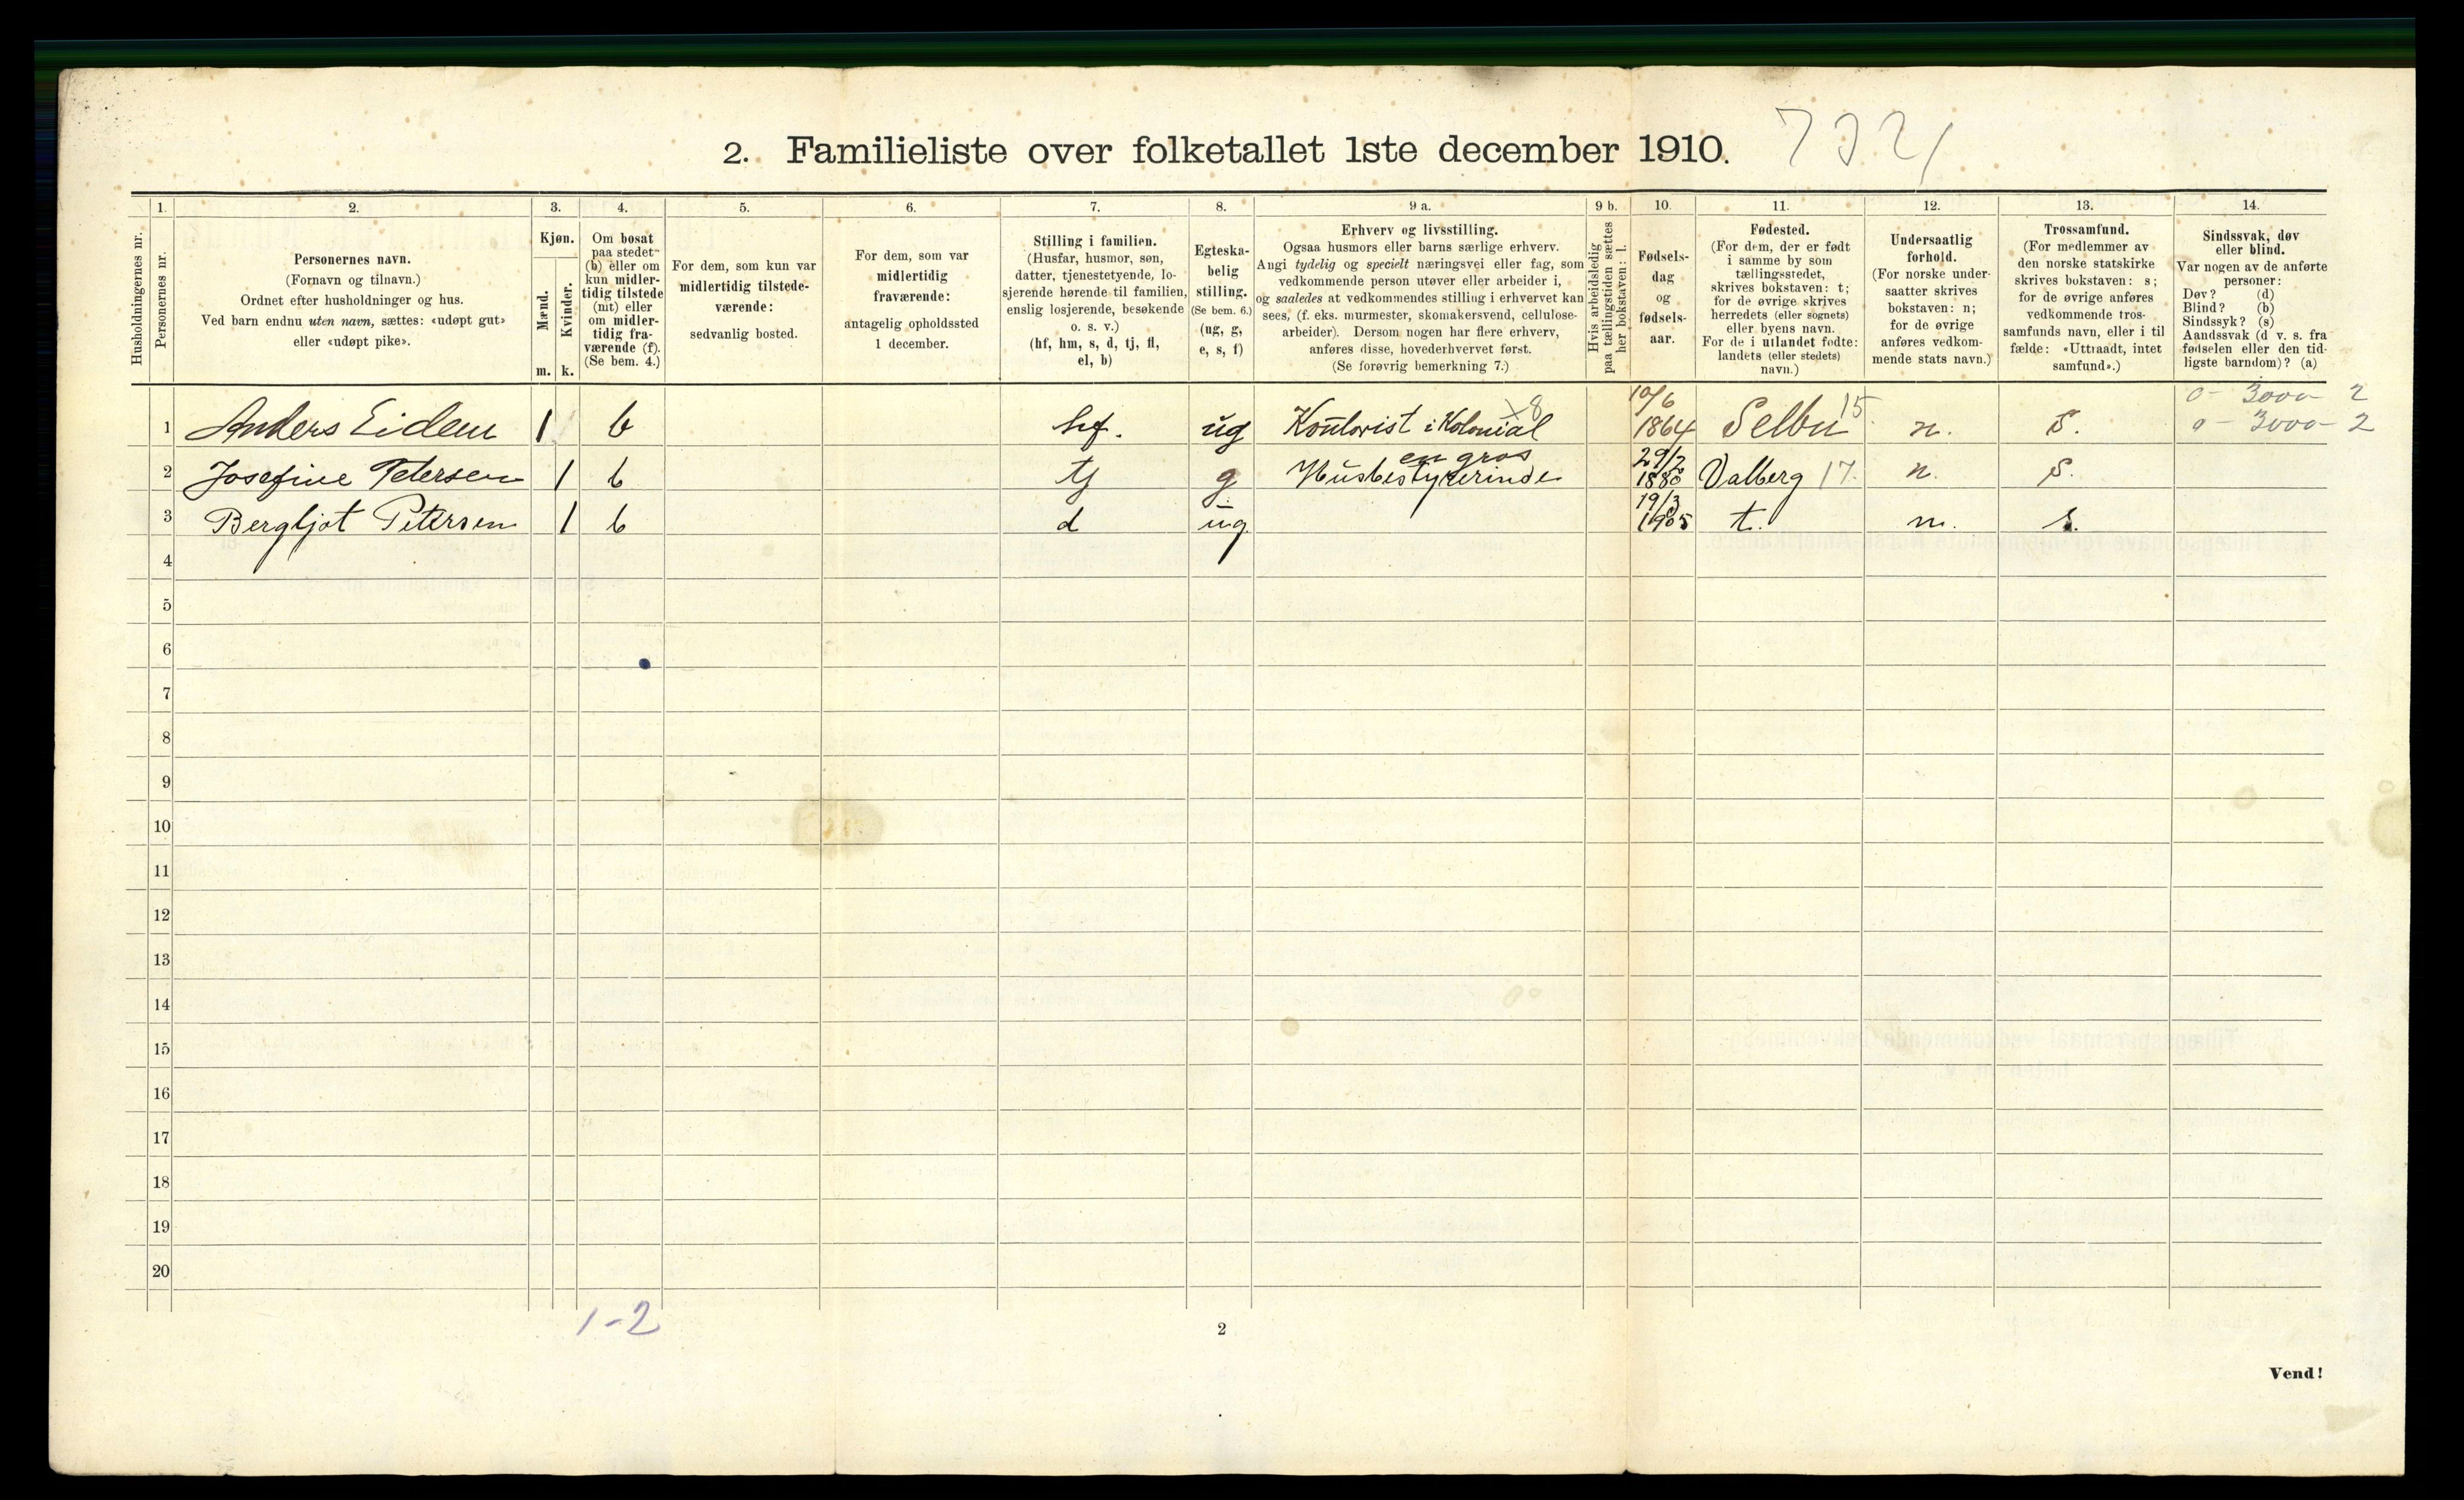 2. Familieliste over folketallet 1ste december 1910. 7321
1. 2. 3. 4. 5. 6. 7. 8. 9 a. 9 b. 10. 11. 12. 13. 14.
Husholdningernes nr.
Personernes nr.
Personernes navn.
(Fornavn og tilnavn.)
Ordnet efter husholdninger og hus.
Ved barn endnu uten navn, sættes: «udøpt gut»
eller «udøpt pike».
Kjøn.
Mænd.
Kvinder.
m. k.
Om bosat
paa stedet
(b) eller om
kun midler-
tidig tilstede
(mt) eller
om midler-
tidig fra-
værende (f).
(Se bem. 4.)
For dem, som kun var
midlertidig tilstede-
værende:
sedvanlig bosted.
For dem, som var
midlertidig
fraværende:
antagelig opholdssted
1 december.
Stilling i familien.
(Husfar, husmor, søn,
datter, tjenestetyende, lo-
sjerende hørende til familien,
enslig losjerende, besøkende
o. s. v.)
(hf, hm, s, d, tj, fl,
el, b)
Egteska-
belig
stilling.
(Se bem. 6.)
(ug, g,
e, s, f)
Erhverv og livsstilling.
Ogsaa husmors eller barns særlige erhverv.
Angi tydelig og specielt næringsvei eller fag, som
vedkommende person utøver eller arbeider i,
og saaledes at vedkommendes stilling i erhvervet kan
sees, (f. eks. murmester, skomakersvend, cellulose-
arbeider). Dersom nogen har flere erhverv,
anføres disse, hovederhvervet først.
(Se forøvrig bemerkning 7.)
Hvis arbeidsledig
paa tællingstiden sættes
her bokstaven: l.
Fødsels-
dag
og
fødsels-
aar.
Fødested.
(For dem, der er født
i samme by som
tællingsstedet,
skrives bokstaven: t;
for de øvrige skrives
herredets (eller sognets)
eller byens navn.
For de i utlandet fødte:
landets (eller stedets)
navn.)
Undersaatlig
forhold.
(For norske under-
saatter skrives
bokstaven: n;
for de øvrige
anføres vedkom-
mende stats navn.)
Trossamfund.
(For medlemmer av
den norske statskirke
skrives bokstaven: s;
for de øvrige anføres
vedkommende tros-
samfunds navn, eller i til
fælde: «Uttraadt, intet
samfund».)
Sindssvak, døv
eller blind.
Var nogen av de anførte
personer:
Døv? (d)
Blind? (b)
Sindssyk? (s)
Aandssvak (d v. s. fra
fødselen eller den tid-
ligste barndom)? (a)
10/6 0 - 3000 - 2
1 Anders Eidem 1 b hf. ug Kontorist i Kolonial x8 1864 Selbu 15 n. S. 0 - 3000 - 2
en gros 29/2
2 Josefine Petersen 1 b tj g Husbestyrerinde 1880 Valberg 17. n. S.
19/3
3 Bergljot Petersen 1 b d ug 1905 t. n. s.
4
5
6
7
8
9
10
11
12
13
14
15
16
17
18
19
20
1-2
2
Vend!